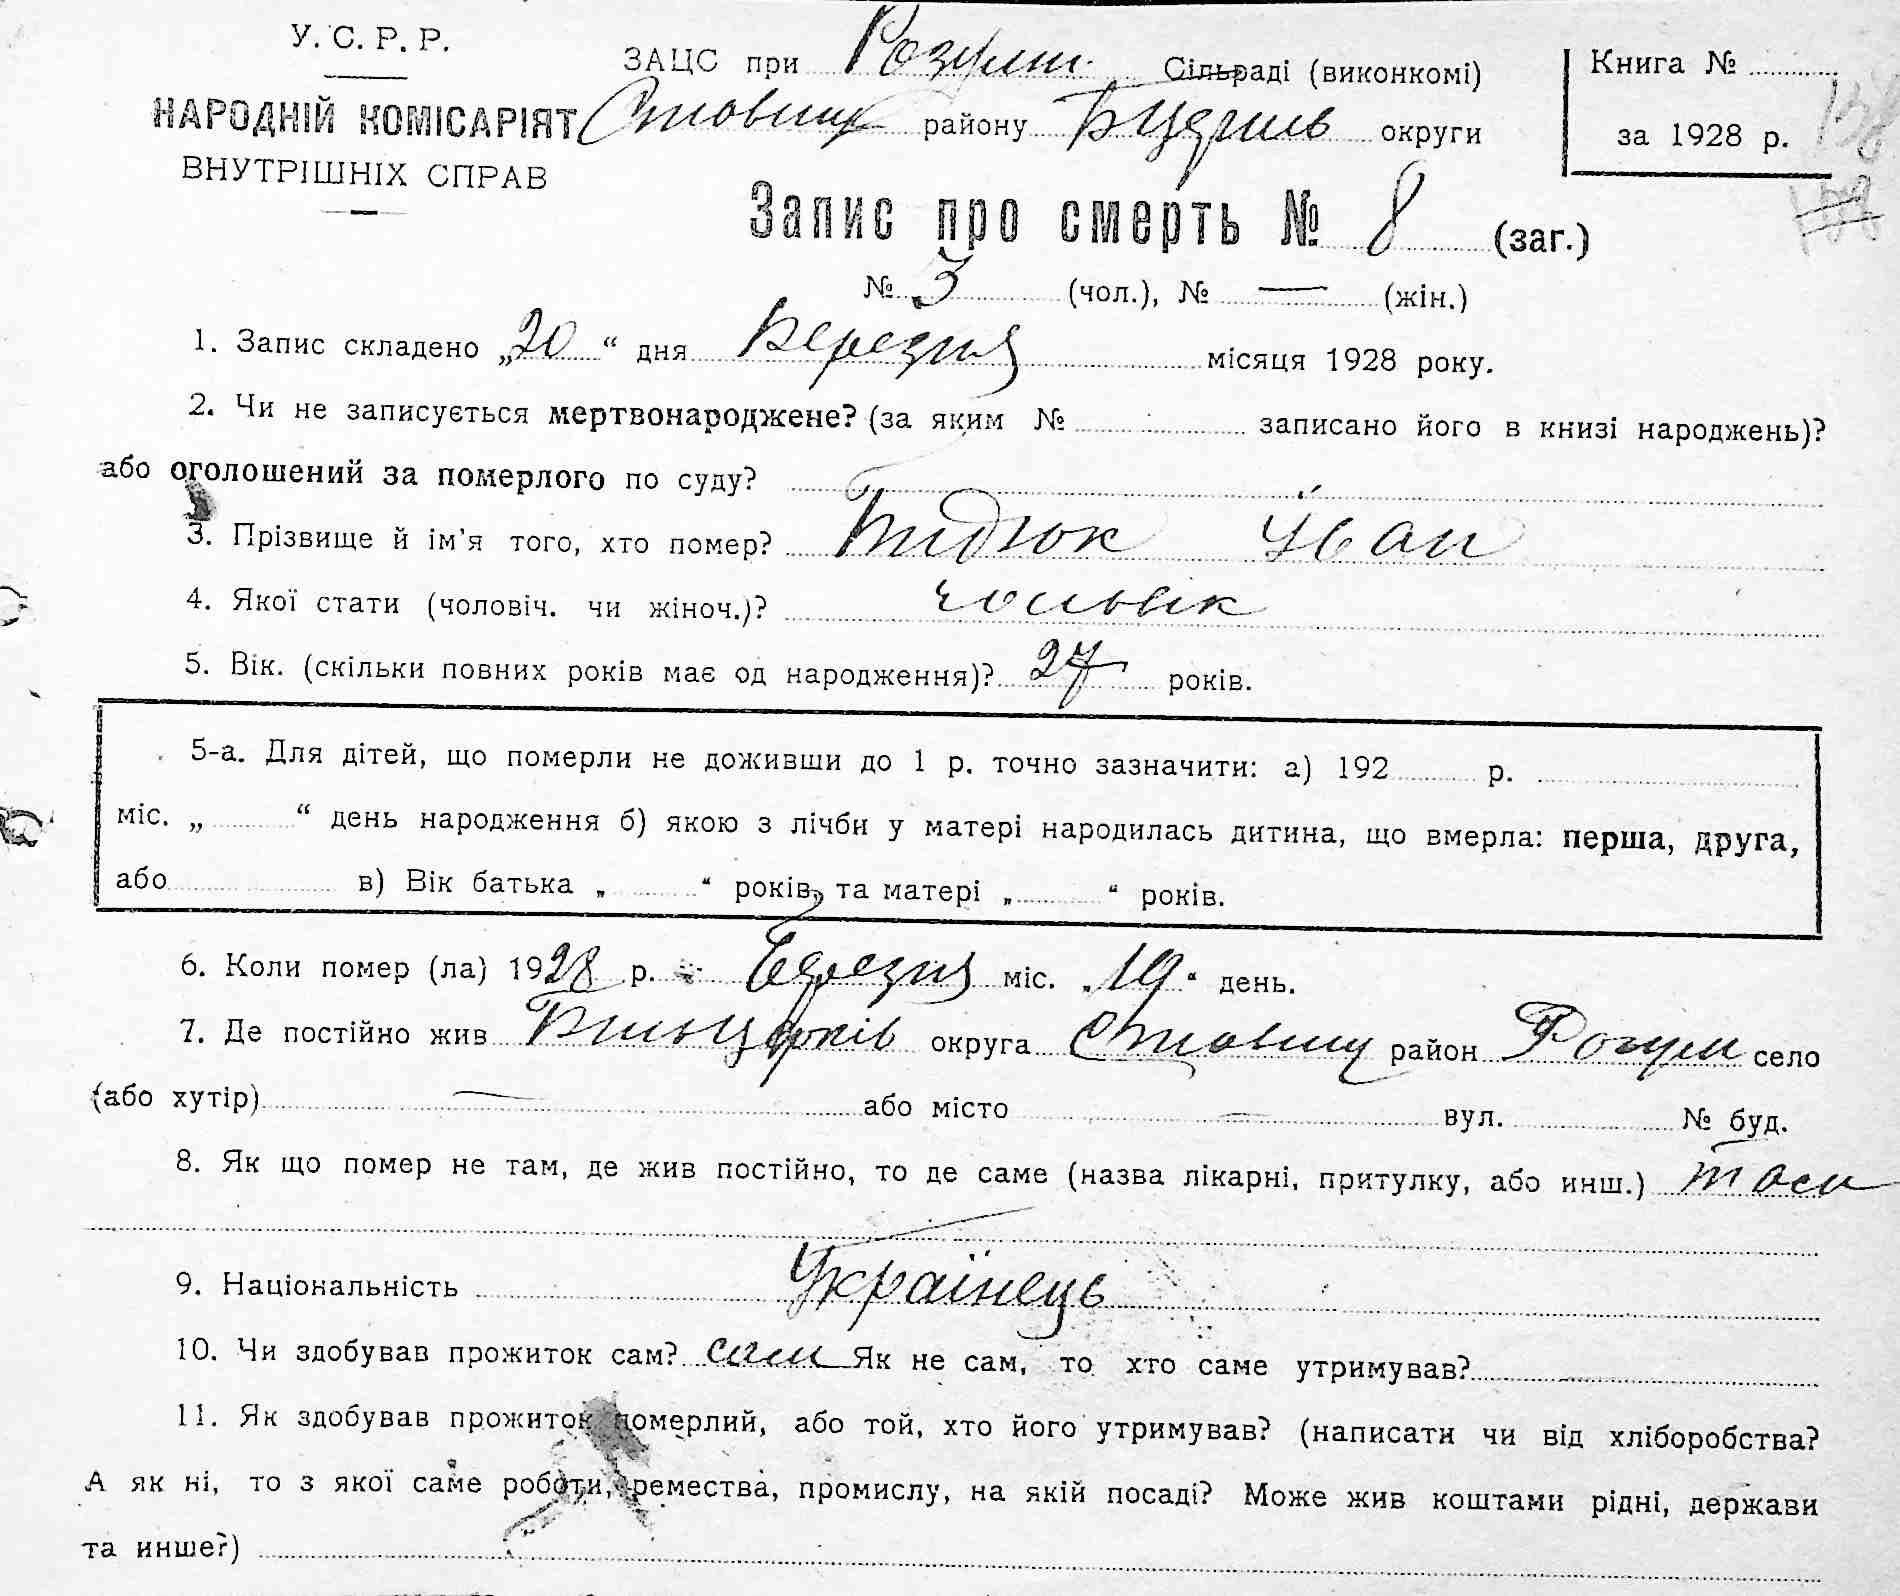 У. С. Р. Р.
НАРОДНІЙ КОМІСАРІЯТ
ВНУТРІШНІХ СПРАВ
ЗАЦС при Розумн. Сільраді (виконкомі)
району округи
Книга №
за 1928 р.
158
Запис про смерть № 8 (заг.)
№ 3 (чол.), № — (жін.)
1. Запис складено „20“ дня Березня місяця 1928 року.
2. Чи не записується мертвонароджене? (за яким № записано його в книзі народжень)?
або оголошений за померлого по суду?
3. Прізвище й ім'я того, хто помер? Іван
4. Якої стати (чоловіч. чи жіноч.)? чоловік
5. Вік. (скільки повних років має од народження)? 27 років.
5-а. Для дітей, що померли не доживши до 1 р. точно зазначити: а) 192 р.
міс. „ “ день народження б) якою з лічби у матері народилась дитина, що вмерла: перша, друга,
або в) Вік батька „ “ років, та матері „ “ років.
6. Коли помер (ла) 1928 р. Березня міс. „19“ день.
7. Де постійно жив округа район село
(або хутір) — або місто — вул. № буд.
8. Як що помер не там, де жив постійно, то де саме (назва лікарні, притулку, або инш.)
9. Національність Українець
10. Чи здобував прожиток сам? сам Як не сам, то хто саме утримував?
11. Як здобував прожиток померлий, або той, хто його утримував? (написати чи від хліборобства?
А як ні, то з якої саме роботи, ремества, промислу, на якій посаді? Може жив коштами рідні, держави
та инше?)